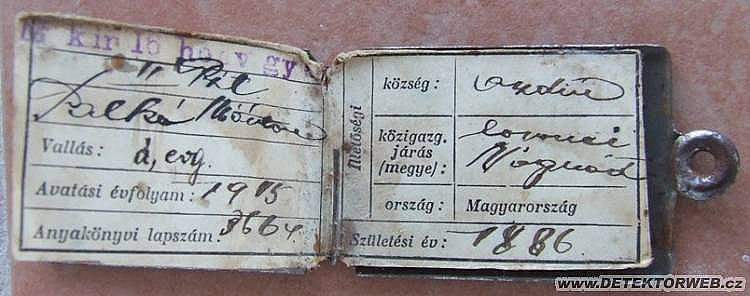 kir 15 h gy
II Pál
Vallás: á, evg.
Avatási évfolyam: 1915
Anyakönyvi lapszám: 3664
Illetőségi
község:
közigazg. járás (megye): losonci Nógrád
ország: Magyarország
Születési év: 1886.
www.DETEKTORWEB.cz